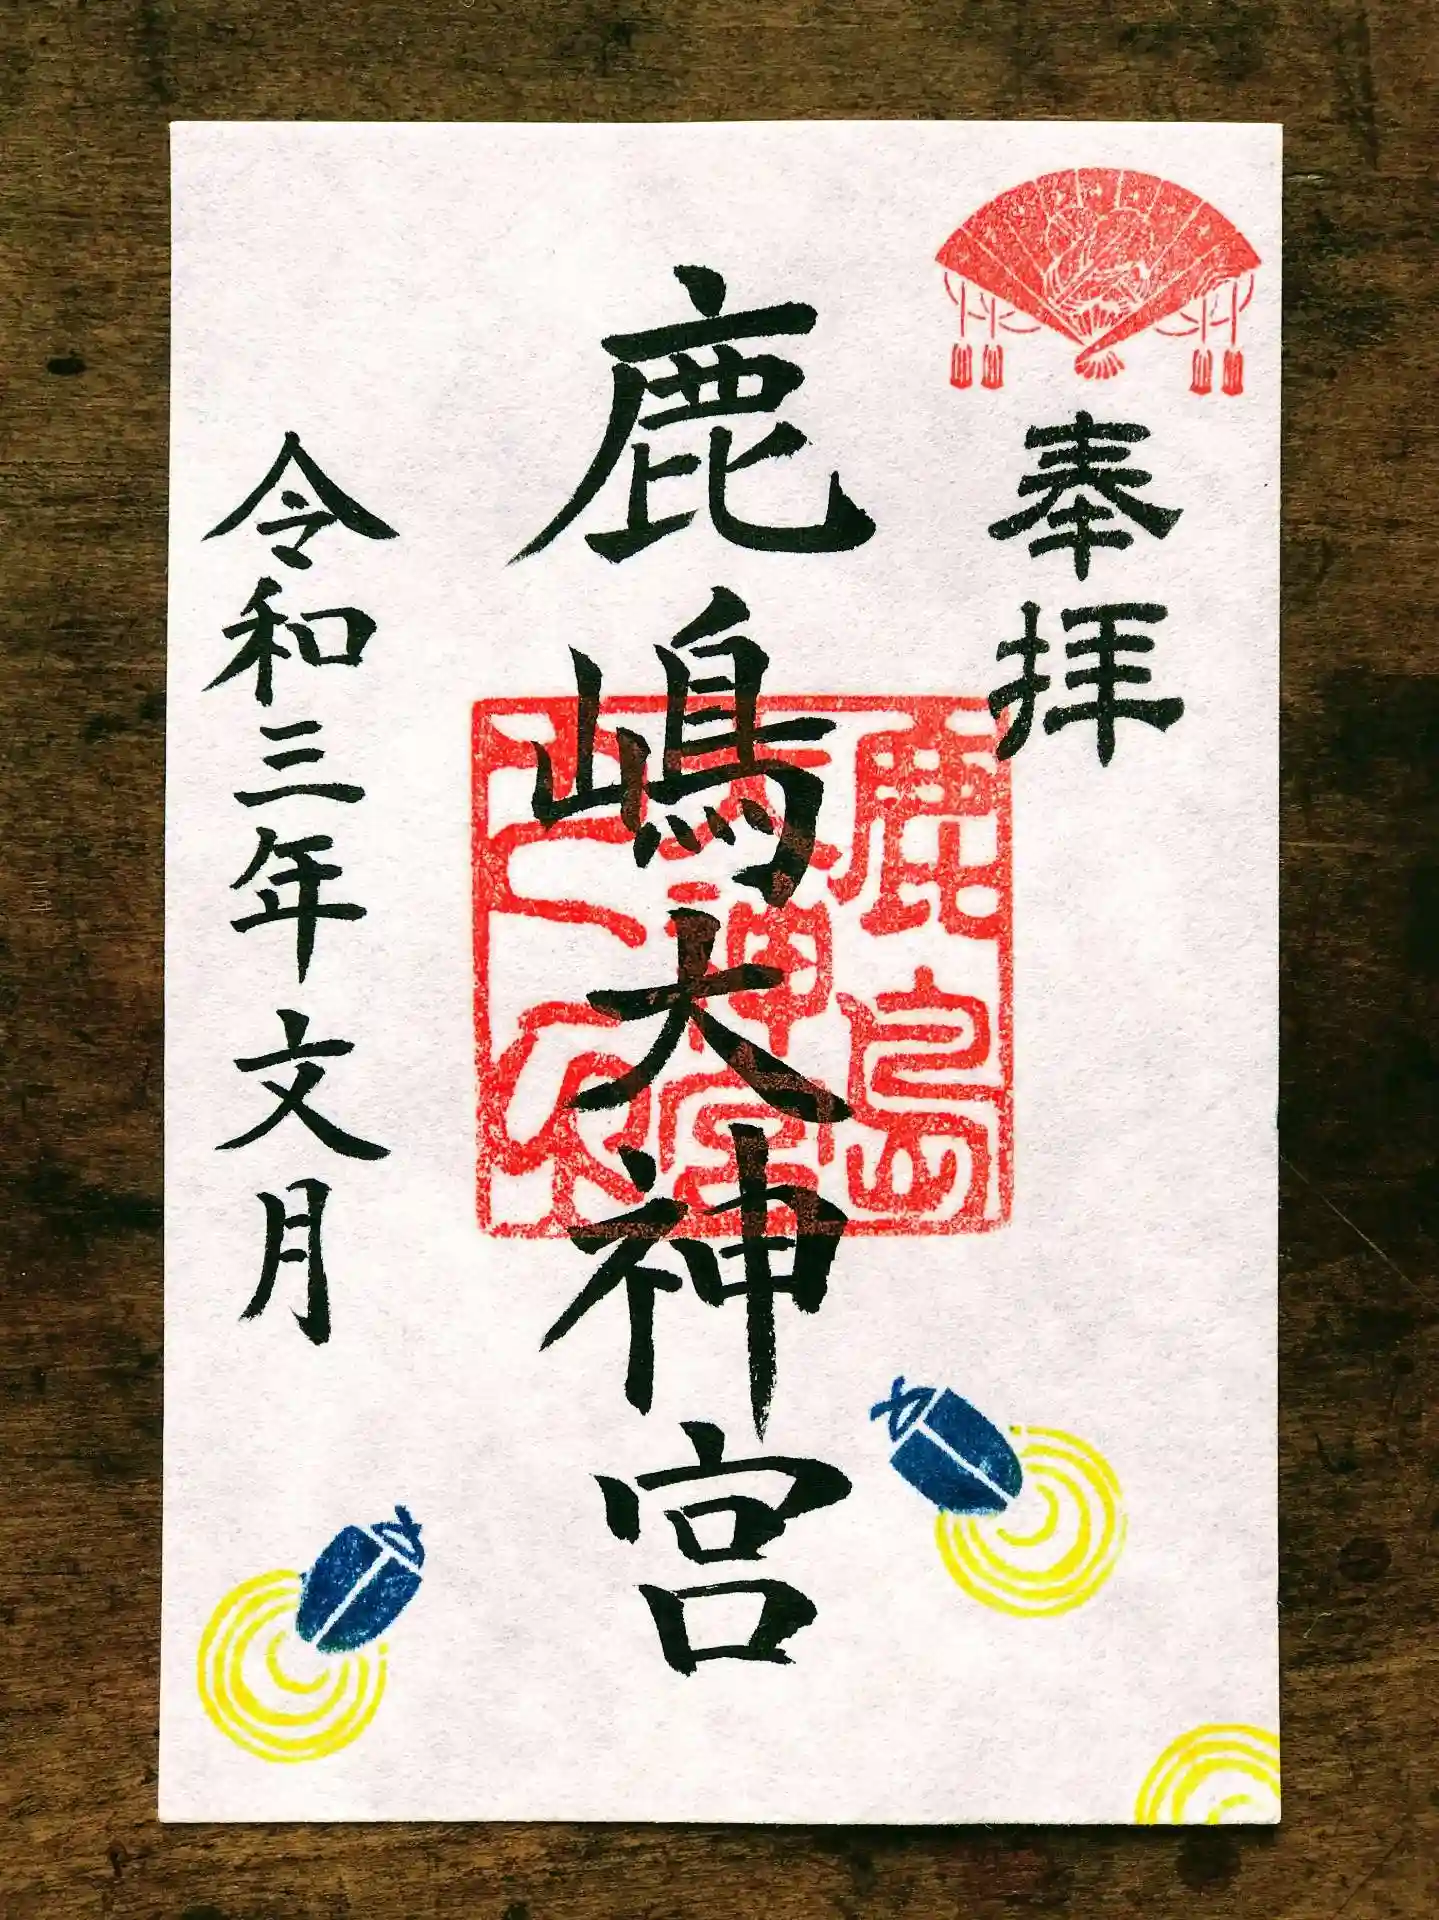 奉拝
鹿嶋大神宮
令和三年文月
鹿島
大神宮
之印